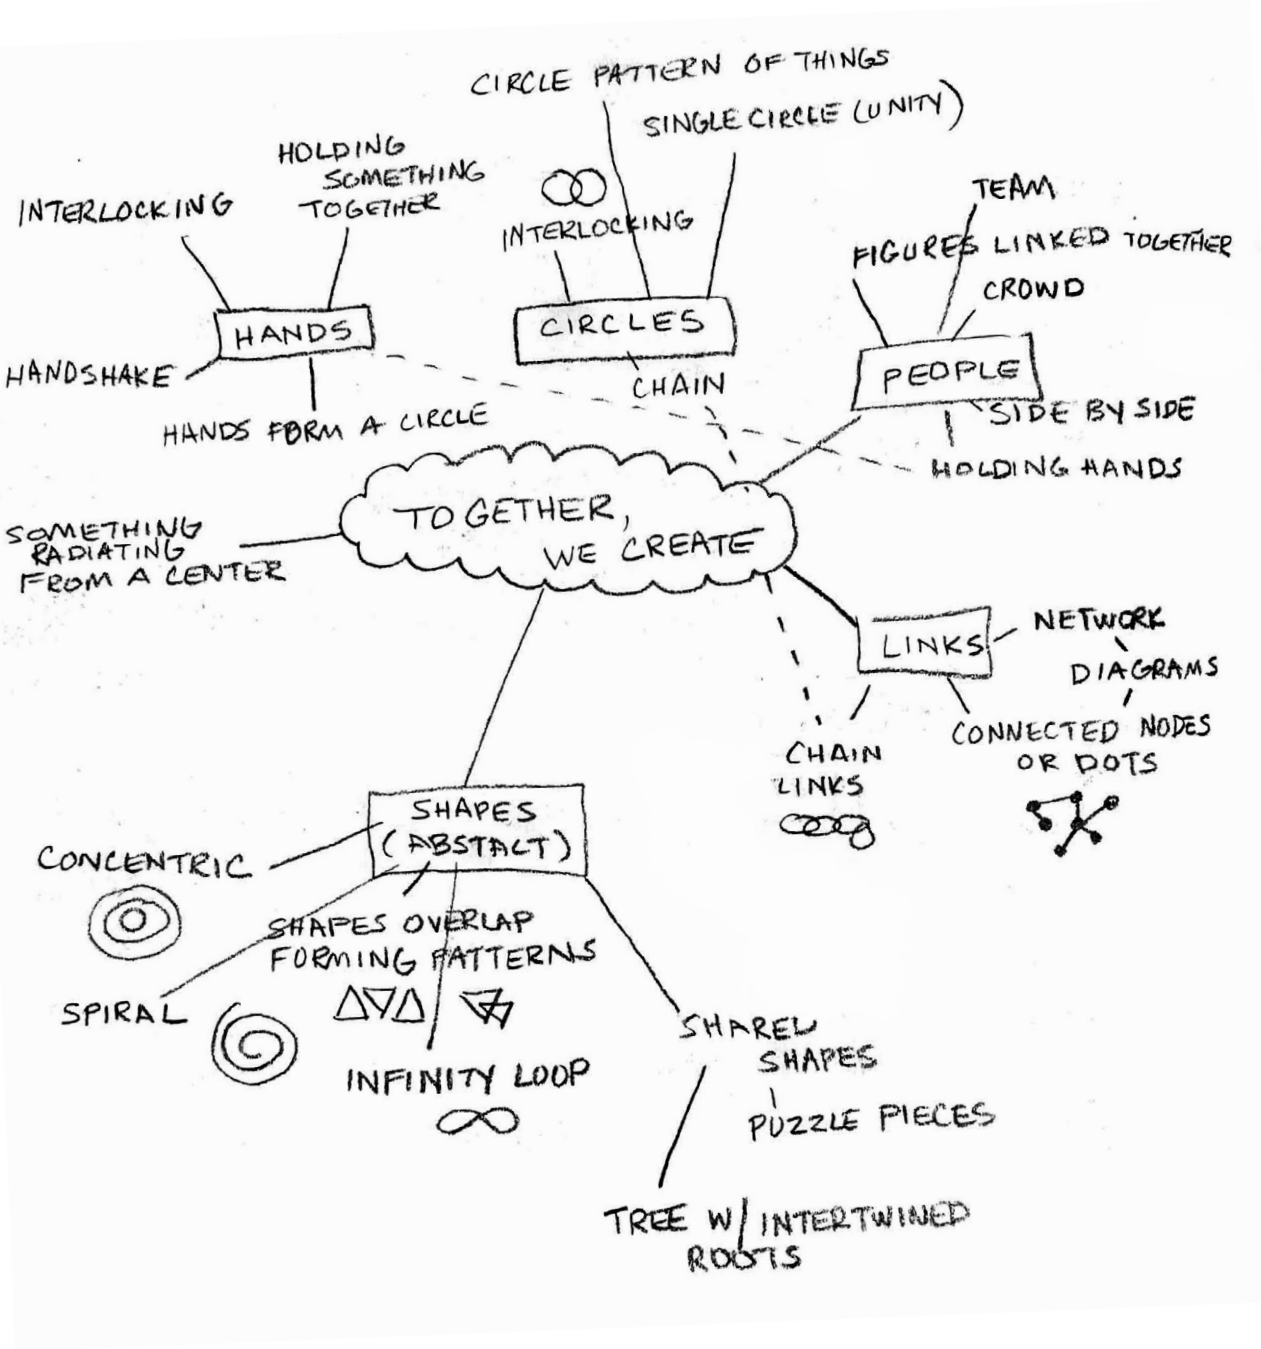 CIRCLE PATTERN OF THINGS
SINGLE CIRCLE (UNITY)
HOLDING
SOMETHING
TOGETHER
INTERLOCKING
INTERLOCKING
TEAM
FIGURES LINKED TOGETHER
CROWD
HANDS
CIRCLES
PEOPLE
HANDSHAKE
CHAIN
SIDE BY SIDE
HANDS FORM A CIRCLE
HOLDING HANDS
TOGETHER,
WE CREATE
SOMETHING
RADIATING
FROM A CENTER
LINKS
NETWORK
DIAGRAMS
CONNECTED NODES
OR DOTS
CHAIN
LINKS
SHAPES
(ABSTALT)
CONCENTRIC
SHAPES OVERLAP
FORMING PATTERNS
SPIRAL
INFINITY LOOP
SHARED
SHAPES
PUZZLE PIECES
TREE W/ INTERTWINED
ROOTS